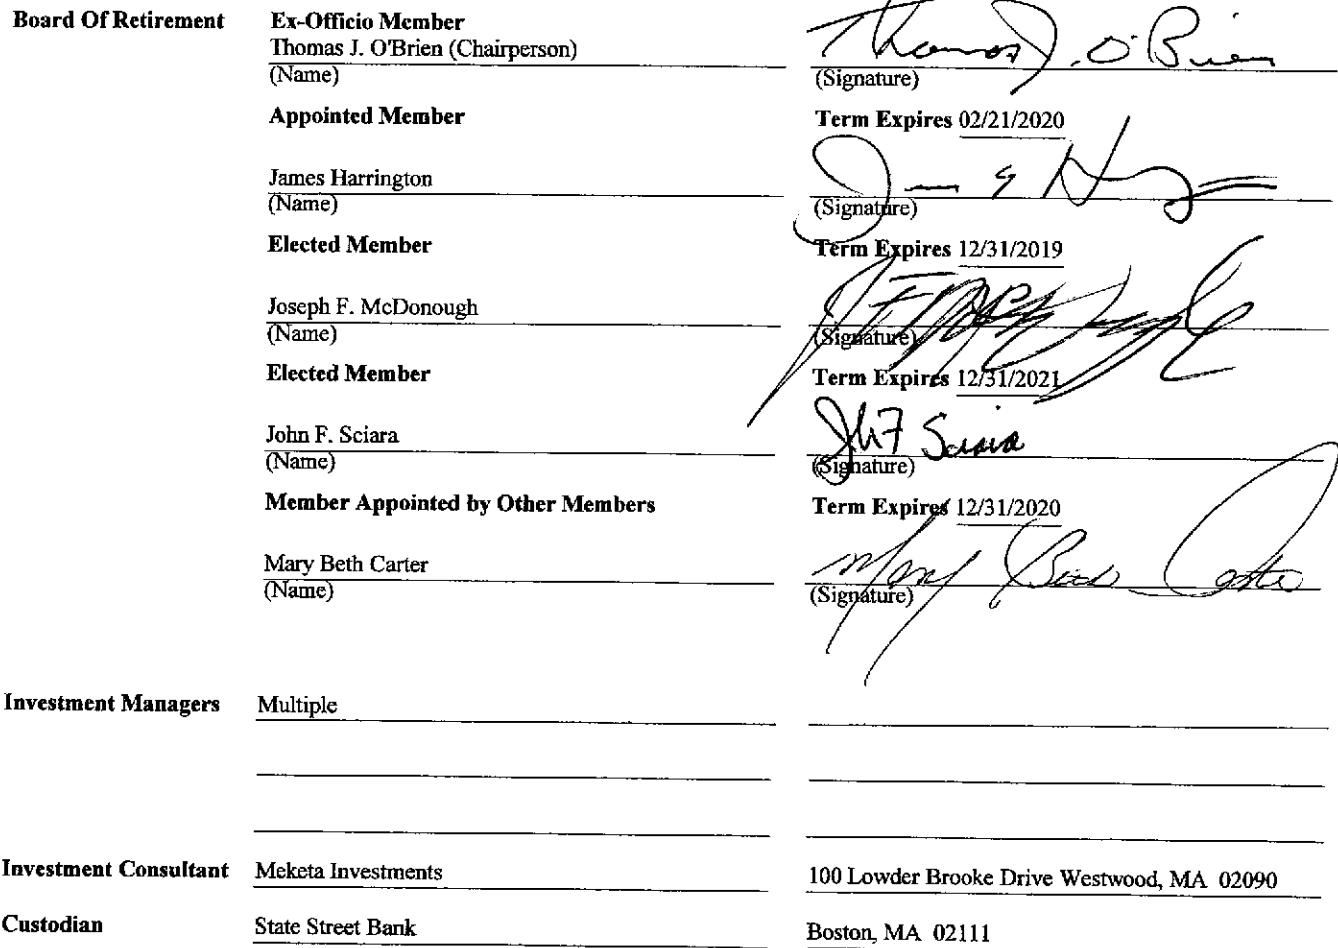 Board Of Retirement Ex-Officio Member
Thomas J. O'Brien (Chairperson) Thomas J. O'Brien
(Name) (Signature)
Appointed Member Term Expires 02/21/2020
James Harrington
(Name) (Signature)
Elected Member Term Expires 12/31/2019
Joseph F. McDonough
(Name) (Signature)
Elected Member Term Expires 12/31/2021
John F. Sciara Jh F Sciara
(Name) (Signature)
Member Appointed by Other Members Term Expires 12/31/2020
Mary Beth Carter Mary Beth Carter
(Name) (Signature)
Investment Managers Multiple
Investment Consultant Meketa Investments 100 Lowder Brooke Drive Westwood, MA 02090
Custodian State Street Bank Boston, MA 02111